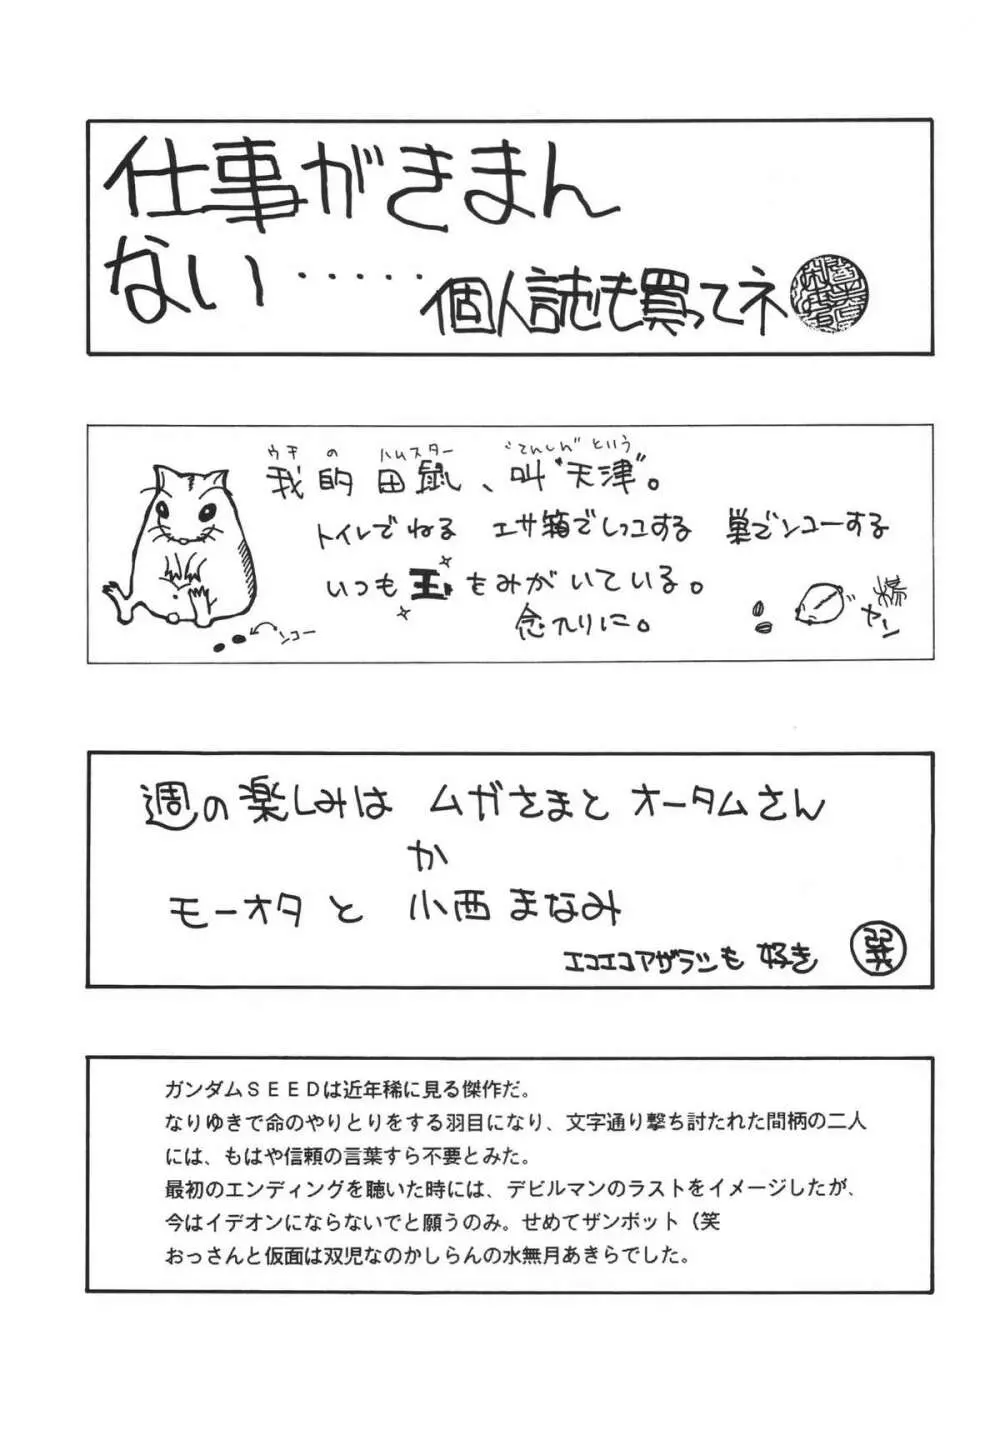 仕事がきまん
ない・・・・・
個人誌も買ってネ
ウチ の ハムスター “てんしん”という
我的田鼠、叫“天津”。
トイレでねる エサ箱でしっコする 巣でンコーする
いつも玉をみがいている。
念入りに。
ンコー
ヤーン
週の楽しみは ムガさまと オータムさん
か
モーオタと 小西まなみ
エコエコアザラシも好き
巽
ガンダムＳＥＥＤは近年稀に見る傑作だ。
なりゆきで命のやりとりをする羽目になり、文字通り撃ち討たれた間柄の二人
には、もはや信頼の言葉すら不要とみた。
最初のエンディングを聴いた時には、デビルマンのラストをイメージしたが、
今はイデオンにならないでと願うのみ。せめてザンボット（笑
おっさんと仮面は双児なのかしらんの水無月あきらでした。